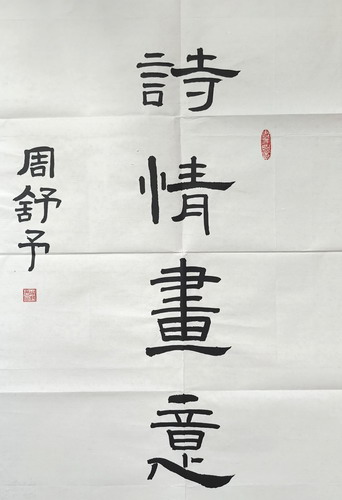 詩情畫意
周舒予